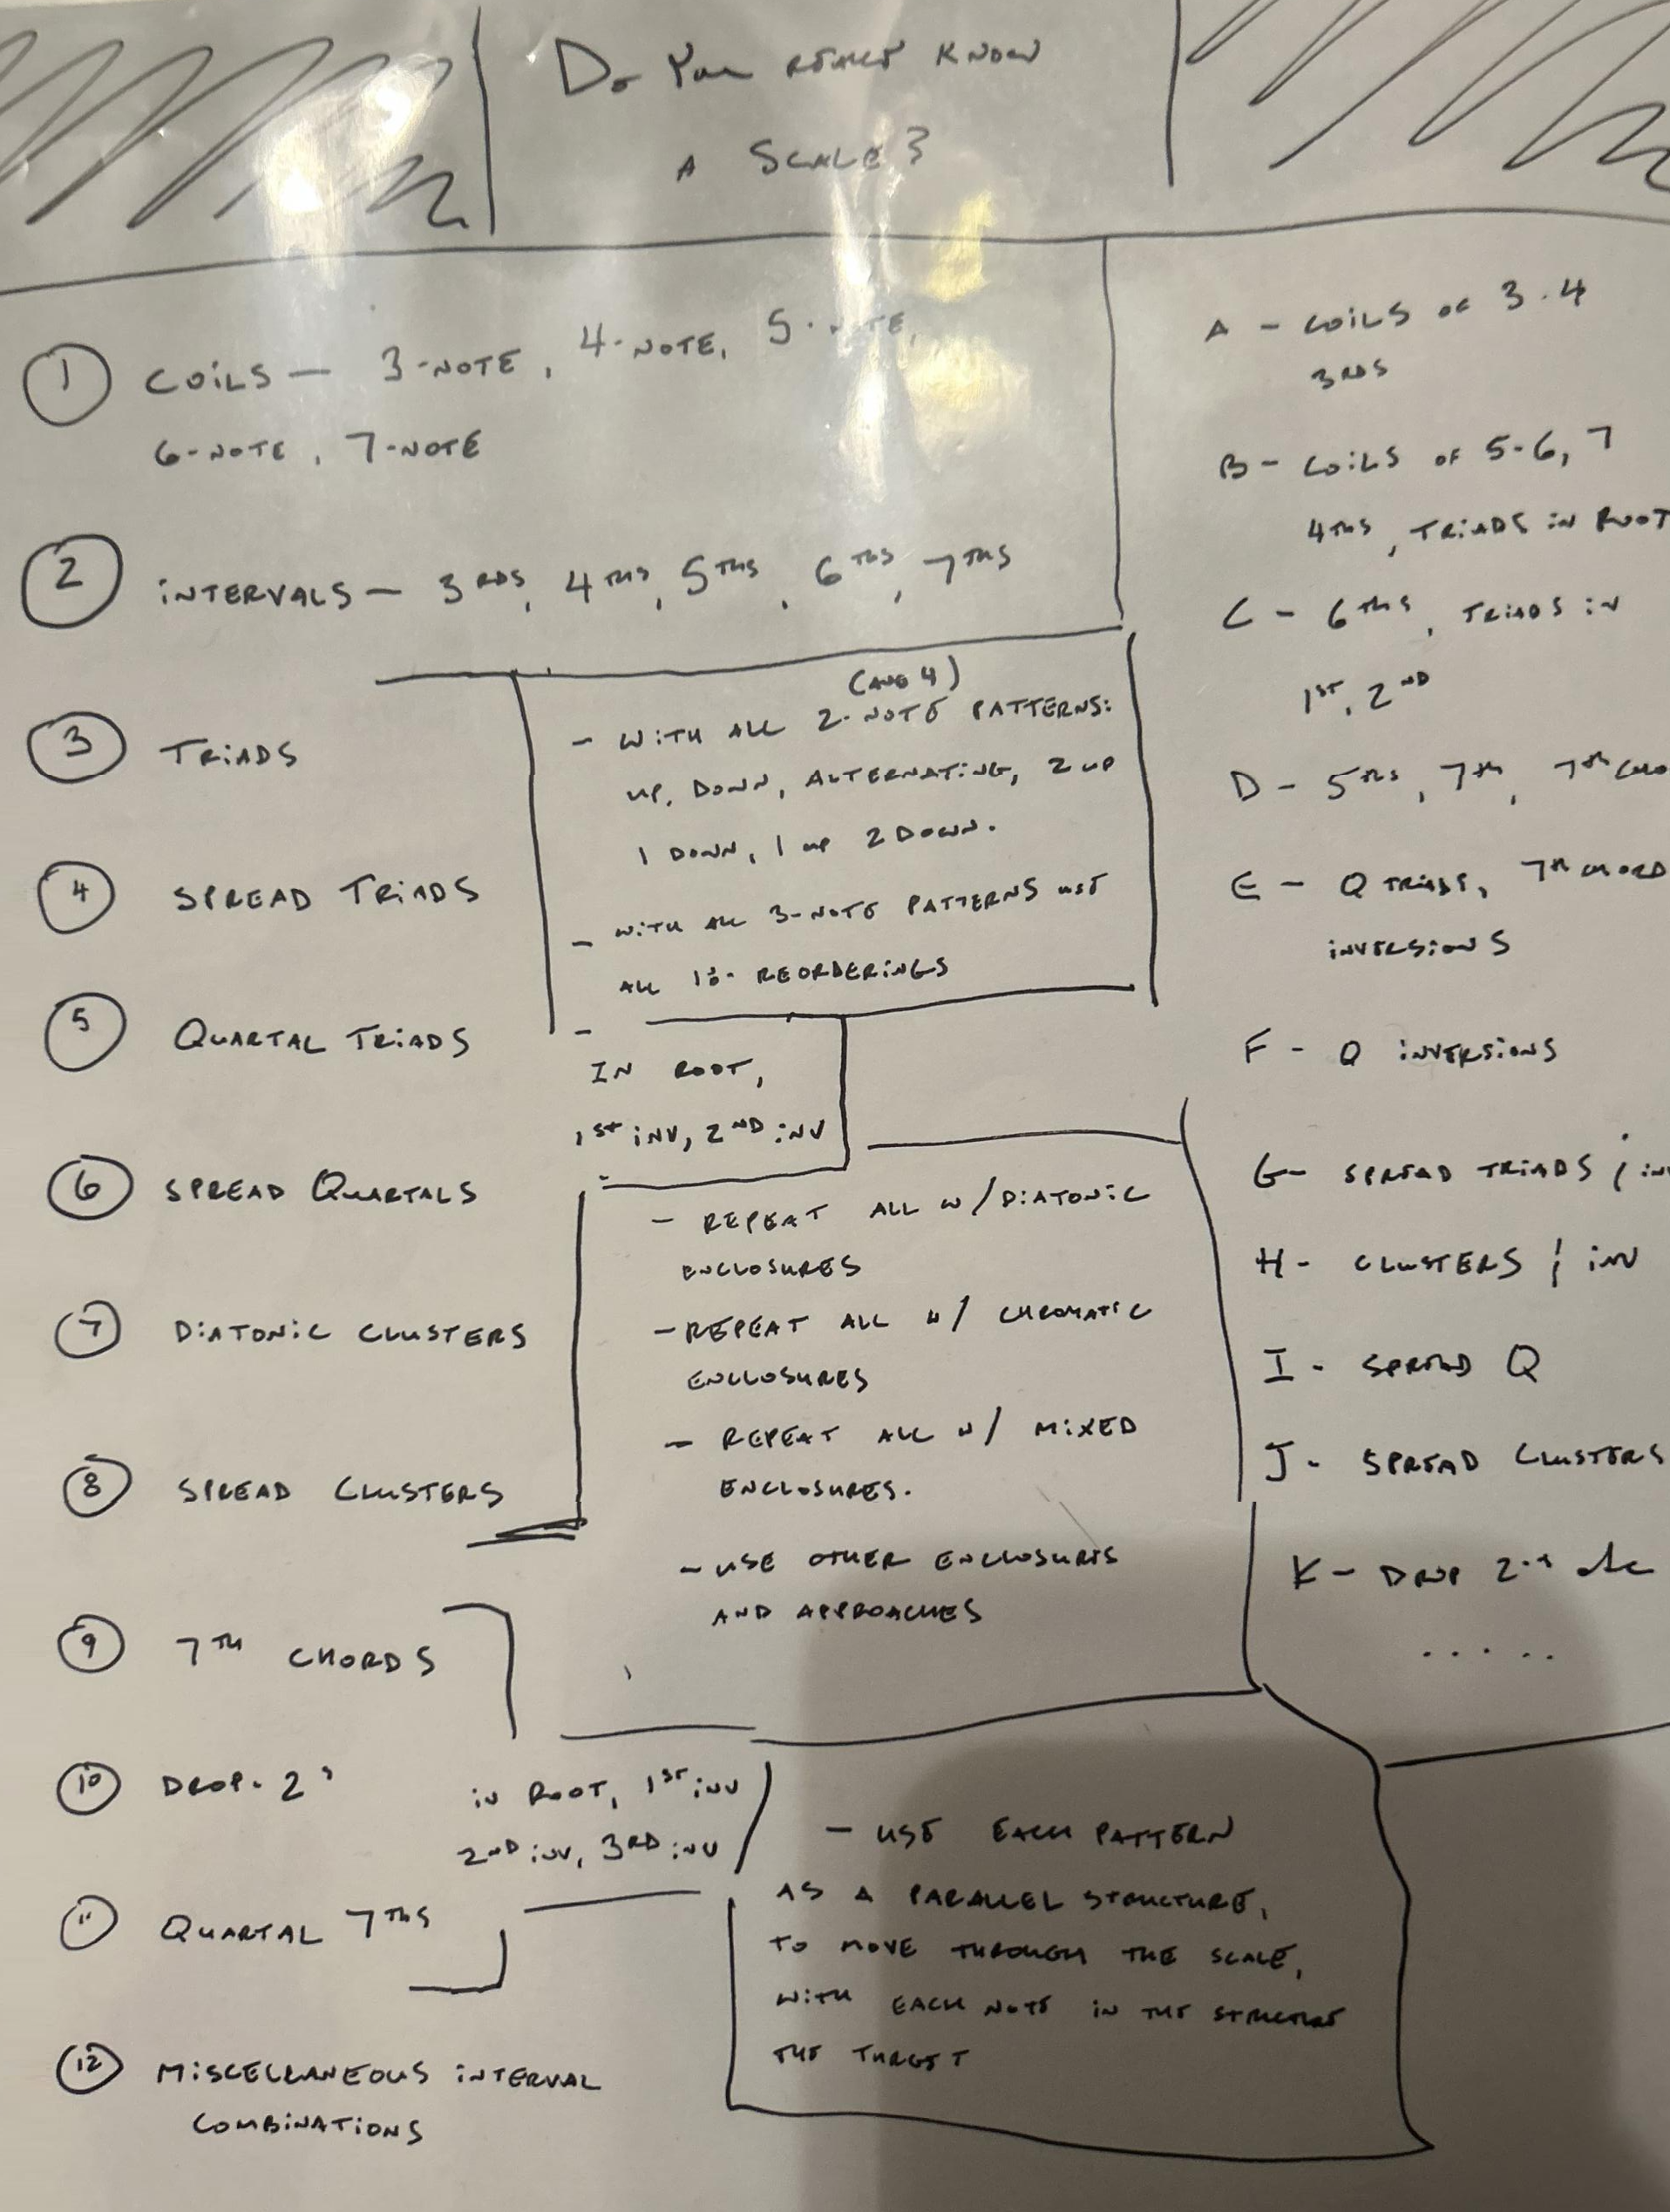 Do You REALLY KNOW
A SCALE?
① COILS — 3-NOTE, 4-NOTE, 5-NOTE,
6-NOTE, 7-NOTE
② INTERVALS — 3RDS, 4THS, 5THS, 6THS, 7THS
③ TRIADS
④ SPREAD TRIADS
⑤ QUARTAL TRIADS
⑥ SPREAD QUARTALS
⑦ DIATONIC CLUSTERS
⑧ SPREAD CLUSTERS
⑨ 7TH CHORDS
⑩ DROP-2's
⑪ QUARTAL 7THS
⑫ MISCELLANEOUS INTERVAL
COMBINATIONS
(AND 4)
- WITH ALL 2-NOTE PATTERNS:
UP, DOWN, ALTERNATING, 2 UP
1 DOWN, 1 UP 2 DOWN.
- WITH ALL 3-NOTE PATTERNS USE
ALL REORDERINGS
-
IN ROOT,
1ST INV, 2ND INV
- REPEAT ALL W/DIATONIC
ENCLOSURES
- REPEAT ALL W/ CHROMATIC
ENCLOSURES
- REPEAT ALL W/ MIXED
ENCLOSURES.
- USE OTHER ENCLOSURES
AND APPROACHES
IN ROOT, 1ST INV
2ND INV, 3RD INV
- USE EACH PATTERN
AS A PARALLEL STRUCTURE,
TO MOVE THROUGH THE SCALE,
WITH EACH NOTE IN THE STRUCTURE
THE TARGET
A - COILS OF 3-4
3RDS
B - COILS OF 5-6, 7
4THS, TRIADS IN ROOT
C - 6THS, TRIADS IN
1ST, 2ND
D - 5THS, 7TH, 7TH CHO
E - Q TRIADS, 7TH CHORD
INVERSIONS
F - Q INVERSIONS
G - SPREAD TRIADS ; INV
H - CLUSTERS ; INV
I - SPREAD Q
J - SPREAD CLUSTERS
K - DROP 2's etc
.....